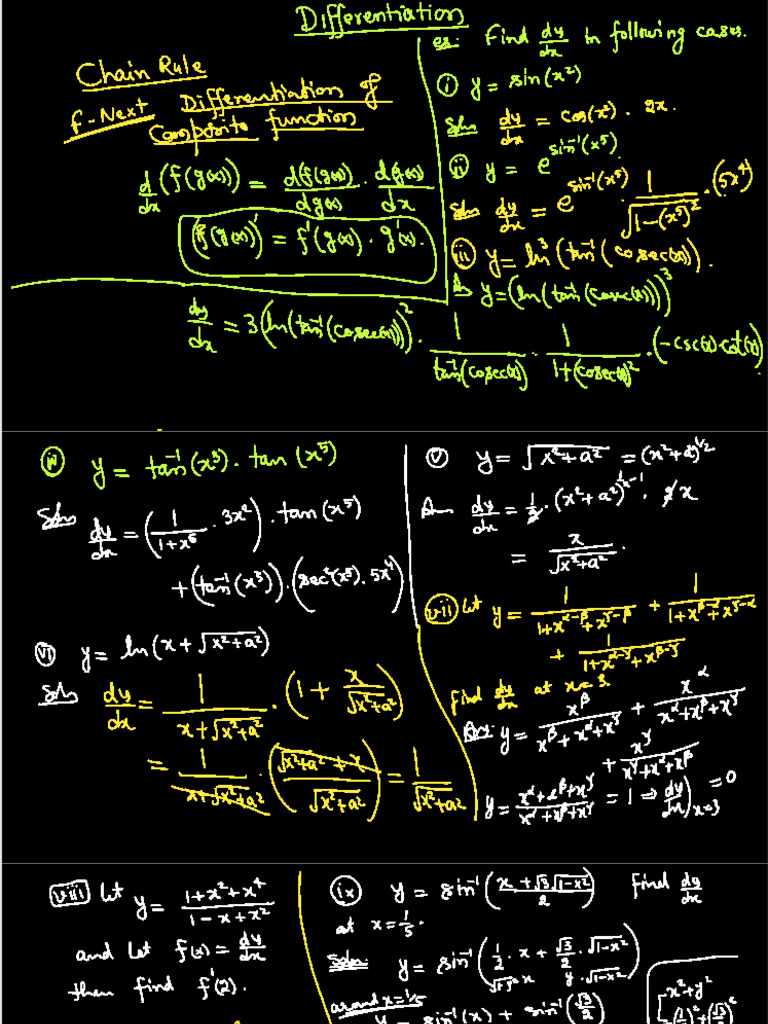 Differentiation
Chain Rule
f-Next Differentiation of
Composite function
d/dx (f(g(x))) = d(f(g(x)))/dg(x) · d(g(x))/dx
(f(g(x)))' = f'(g(x)) · g'(x).
ex: Find dy/dx in following cases.
(i) y = sin(x²)
Soln dy/dx = cos(x²) · 2x.
(ii) y = e^(sin⁻¹(x⁵)).
Soln dy/dx = e^(sin⁻¹(x⁵)) · 1/√(1-(x⁵)²) · (5x⁴)
(iii) y = ln³(tan⁻¹(cosec(x))).
y = (ln(tan⁻¹(cosec(x))))³
dy/dx = 3(ln(tan⁻¹(cosec(x))))² · 1/(tan⁻¹(cosec(x))) · 1/(1+(cosec(x))²) · (-csc(x)·cot(x))
(iv) y = tan⁻¹(x³) · tan(x⁵)
Soln dy/dx = (1/(1+x⁶) · 3x²) · tan(x⁵)
+ (tan⁻¹(x³)) · (sec²(x⁵) · 5x⁴)
(v) y = √(x²+a²) = (x²+a²)^(1/2)
dy/dx = 1/2 · (x²+a²)^(1/2-1) · 2x
= x/√(x²+a²) .
(vi) y = ln(x+√(x²+a²))
Soln dy/dx = 1/(x+√(x²+a²)) · (1 + x/√(x²+a²))
= 1/(x+√(x²+a²)) · ((√(x²+a²) + x)/√(x²+a²)) = 1/√(x²+a²)
(vii) let y = 1/(1+x^(α-β)+x^(γ-β)) + 1/(1+x^(β-α)+x^(γ-α))
+ 1/(1+x^(α-γ)+x^(β-γ))
find dy/dx at x=3.
y = x^β/(x^β+x^α+x^γ) + x^α/(x^α+x^β+x^γ)
+ x^γ/(x^γ+x^α+x^β)
y = (x^α+x^β+x^γ)/(x^α+x^β+x^γ) = 1 ⇒ dy/dx)x=3 = 0
(viii) let y = (1+x²+x⁴)/(1-x+x²)
and let f(x) = dy/dx
then find f'(2).
(ix) y = sin⁻¹((x+√3√(1-x²))/2) find dy/dx
at x = 1/5.
Soln: y = sin⁻¹(1/2 · x + √3/2 · √(1-x²))
√(1-y²) x y · √(1-x²)
around x=1/5
y = sin⁻¹(x) + sin⁻¹(√3/2)
[x²+y²
(1/2)²+(√3/2)²